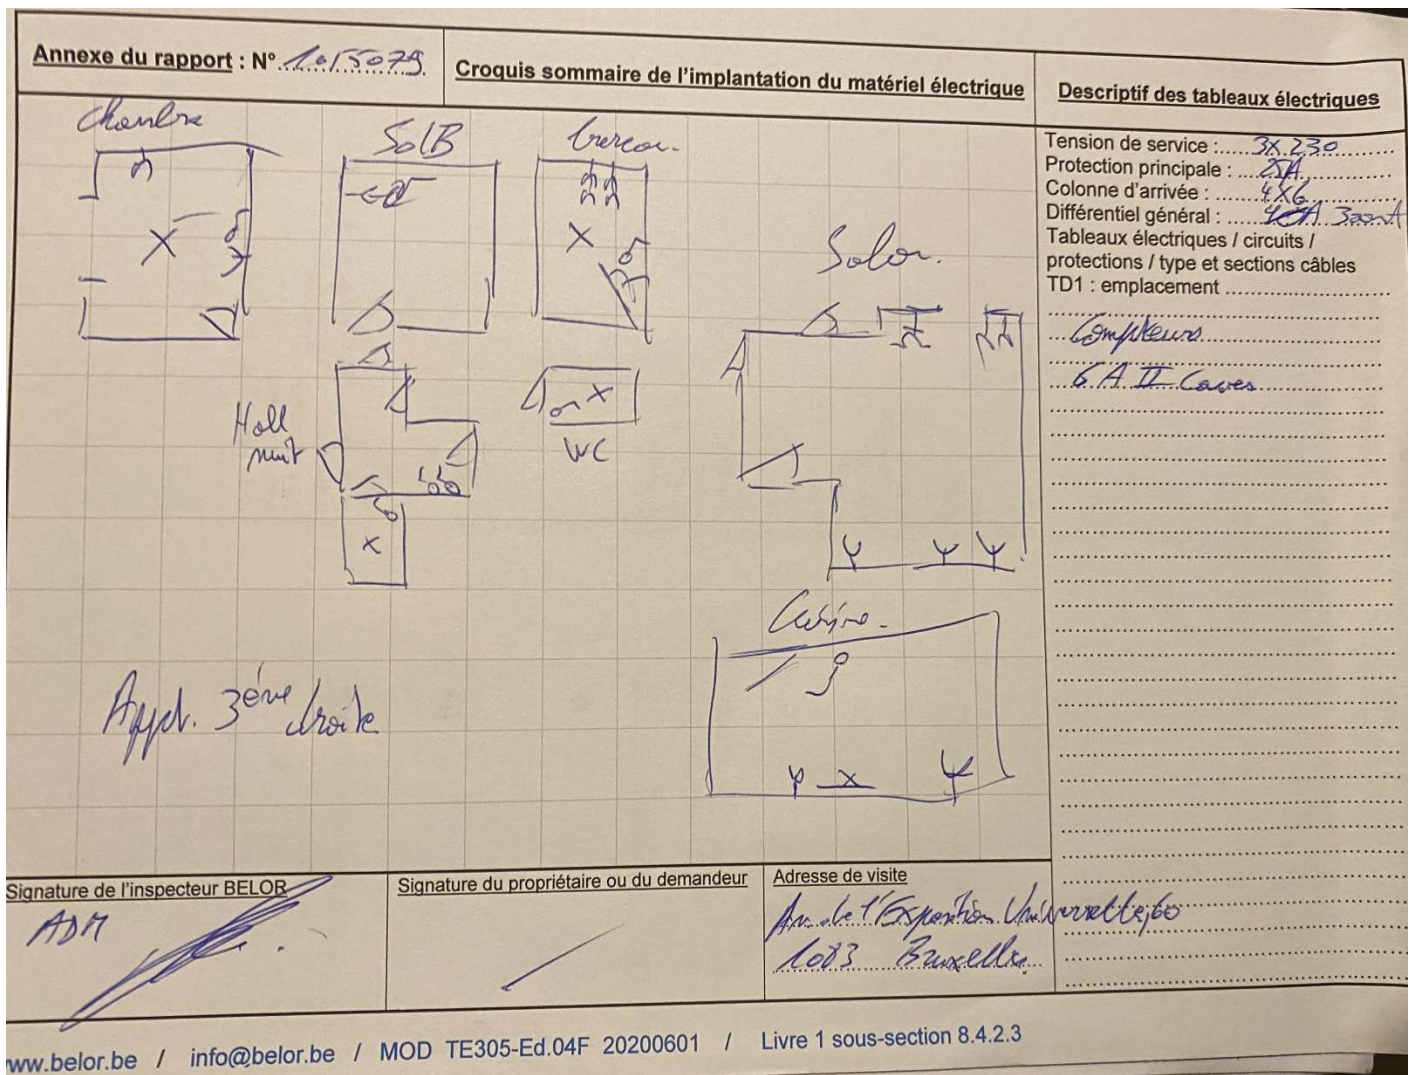 Annexe du rapport : N° 1015079
Croquis sommaire de l'implantation du matériel électrique
Descriptif des tableaux électriques
Chambre
SdB
bureau.
Salon.
Hall
nuit
WC
Cuisine.
Appt. 3ème droite
Tension de service : 3X230
Protection principale : 25A
Colonne d'arrivée : 4X6
Différentiel général : 40A 300mA
Tableaux électriques / circuits /
protections / type et sections câbles
TD1 : emplacement
Compteurs
6 A II Caves
Signature de l'inspecteur BELOR
ADM
Signature du propriétaire ou du demandeur
Adresse de visite
Av. de l'Exposition Universelle, 60
1083 Bruxelles
www.belor.be / info@belor.be / MOD TE305-Ed.04F 20200601 / Livre 1 sous-section 8.4.2.3